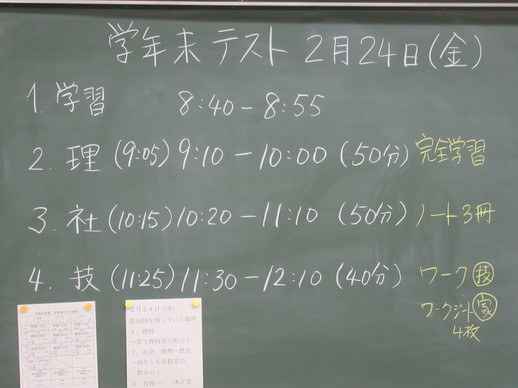 学年末テスト 2月24日(金)
1. 学習 8:40-8:55
2. 理 (9:05) 9:10-10:00 (50分) 完全学習
3. 社 (10:15) 10:20-11:10 (50分) ノート3冊
4. 技 (11:25) 11:30-12:10 (40分) ワーク㊙技
ワークシート 家
4枚
2月24日(金)
1. 理科
2. 社会 地理・歴史